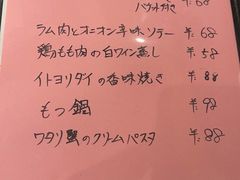 バゲット付き ¥.68
ラム肉とオニオン辛味ソテー ¥.68
鶏もも肉の白ワイン蒸し ¥.58
イトヨリダイの香味焼き ¥.88
もつ鍋 ¥.98
ワタリ蟹のクリームパスタ ¥.88